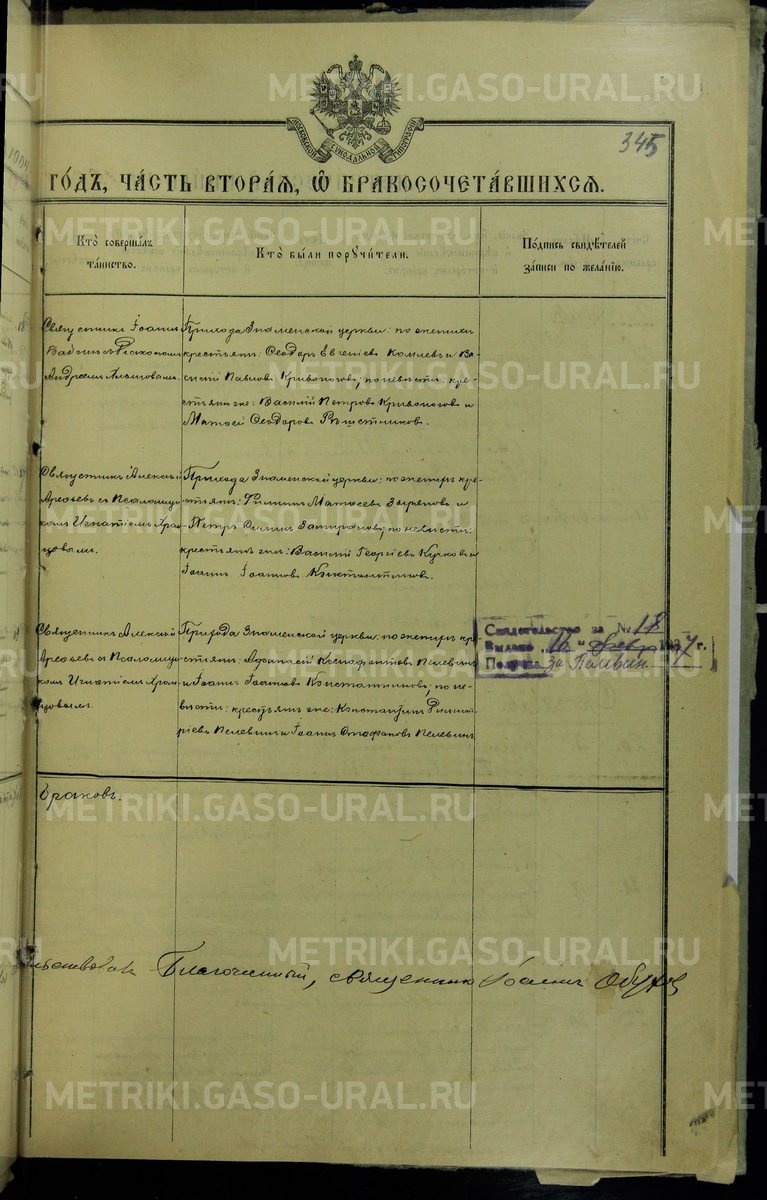 МОСКОВСКОЙ СѴНОДАЛЬНОЙ ТИПОГРАФІИ
345
ГО́ДЪ, ЧА́СТЬ ВТОРА́Я, Ѽ БРАКОСОЧЕТА́ВШИХСЯ.
Кто̀ соверша́лъ
та́инство.
Кто̀ бы́ли порꙋчи́тели.
По́дпись свидѣ́телей
за́писи по жела́нїю.
Священникъ Іоаннъ
Бабинъ съ Псаломщи
Андреемъ
Прихода Знаменской церкви: по женихѣ
крестьяне: Ѳеодоръ Евгеніевъ Комлевъ и Ва-
силій Павловъ Кривоноговъ; по невѣстѣ: кре-
стьяне же: Василій Петровъ Кривоноговъ и
Матѳей Ѳеодоровъ Рѣшетниковъ.
Священникъ Алексій
Арефьевъ съ Псаломщи
комъ Игнатіемъ Храм-
цовымъ.
Прихода Знаменской церкви: по женихѣ кре-
стьяне: Филиппъ Матѳеевъ Зыряновъ и
Петръ; по невѣстѣ:
крестьяне же: Василій Георгіевъ и
Іоаннъ Іоанновъ Константиновъ.
Священникъ Алексій
Арефьевъ съ Псаломщи
комъ Игнатіемъ Храм-
цовымъ.
Прихода Знаменской церкви: по женихѣ кре-
стьяне: Аѳанасій Ксенофонтовъ Пелевинъ
и Іоаннъ Іоанновъ Константиновъ; по не-
вѣстѣ: крестьяне же: Константинъ Димит-
ріевъ Пелевинъ и Іоаннъ Стефановъ Пелевинъ
Свидетельство за № 18
Выдано „16" 1937 г.
Получил за Пелевин
браковъ.
Благочинный, священникъ Іоаннъ Обуховъ
METRIKI.GASO-URAL.RU